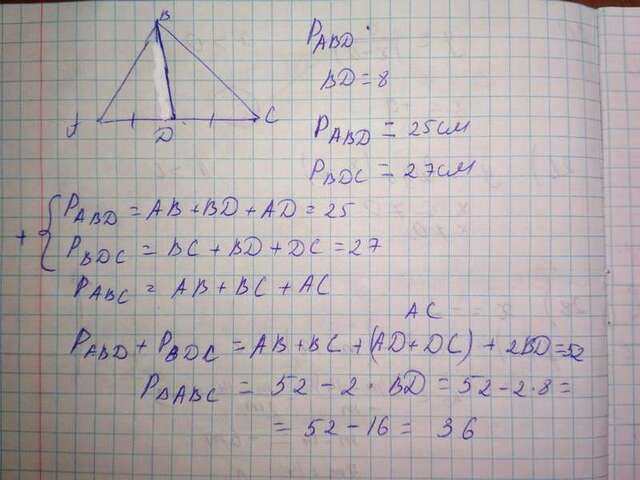 B
A
D
C
P_ABD
BD = 8
P_ABD = 25см
P_BDC = 27см
+ { P_ABD = AB + BD + AD = 25
P_BDC = BC + BD + DC = 27
P_ABC = AB + BC + AC
AC
P_ABD + P_BDC = AB + BC + (AD + DC) + 2BD = 52
P_ΔABC = 52 - 2 · BD = 52 - 2 · 8 =
= 52 - 16 = 36